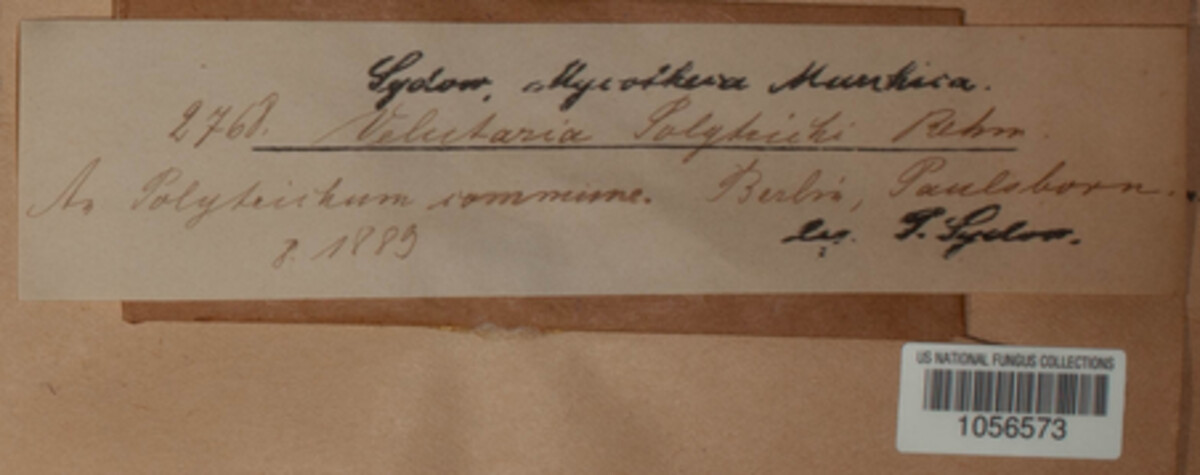 Sydow, Mycotheca Marchica.
2768. Velutaria Polytrichi Rehm.
An Polytrichum commune. Berlin, Paulsborn.
8. 1889
leg. P. Sydow.
US NATIONAL FUNGUS COLLECTIONS
1056573